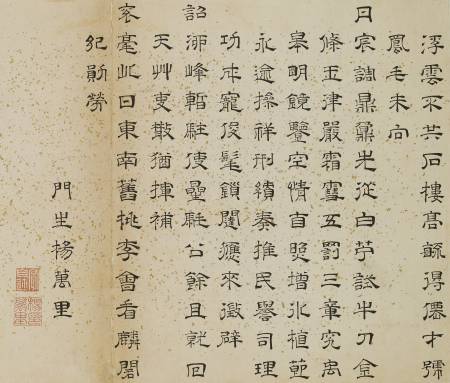 浮雲不共石樓高得僊才號
鳳毛未向
日宸調鼎鼐先從白苧試牛刀金
條玉律嚴霜雪五罰三章究禹
皋明鏡鑒空情自照增冰植範
永逾操祥刑績奏推民譽司理
功成寵俊髦鎖闥應來徵辟
詔峰暫駐使星軺公餘且就回
天艸更散猶揮補
袞毫此日東南舊桃李會看麟閣
紀勛勞
門生楊萬里